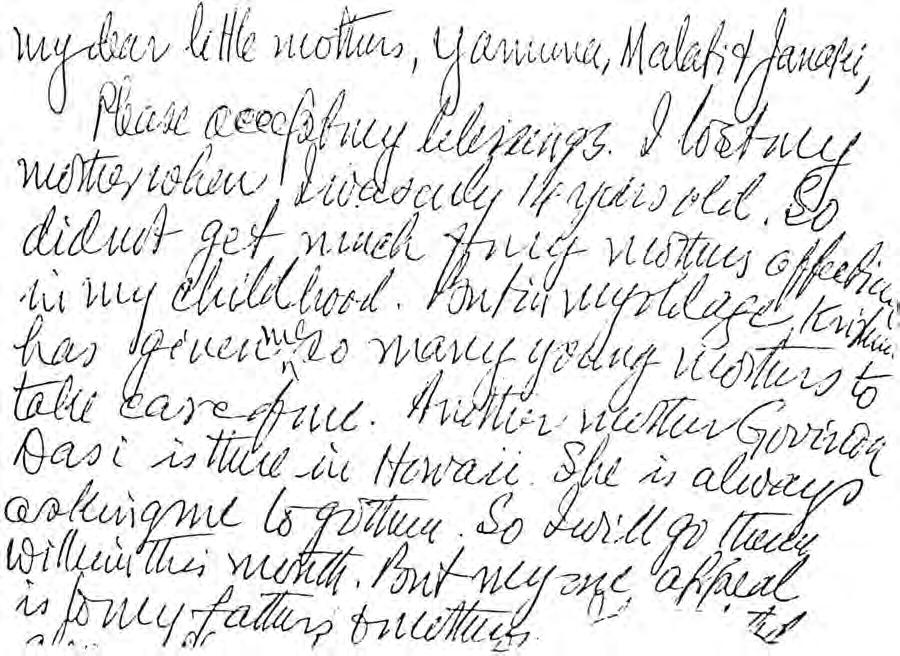 my dear little mothers, Yamuna, Malati & Janaki,
Please accept my blessings. I lost my
mother when I was only 14 years old. So
did not get much of my mothers affection
in my childhood. But in my old age, Krishna
has given me so many young mothers to
take care of me. Another mother Govinda
Dasi is there in Hawaii. She is always
asking me to go there. So I will go there
within this month. But my one appeal
is to my fathers & mothers that